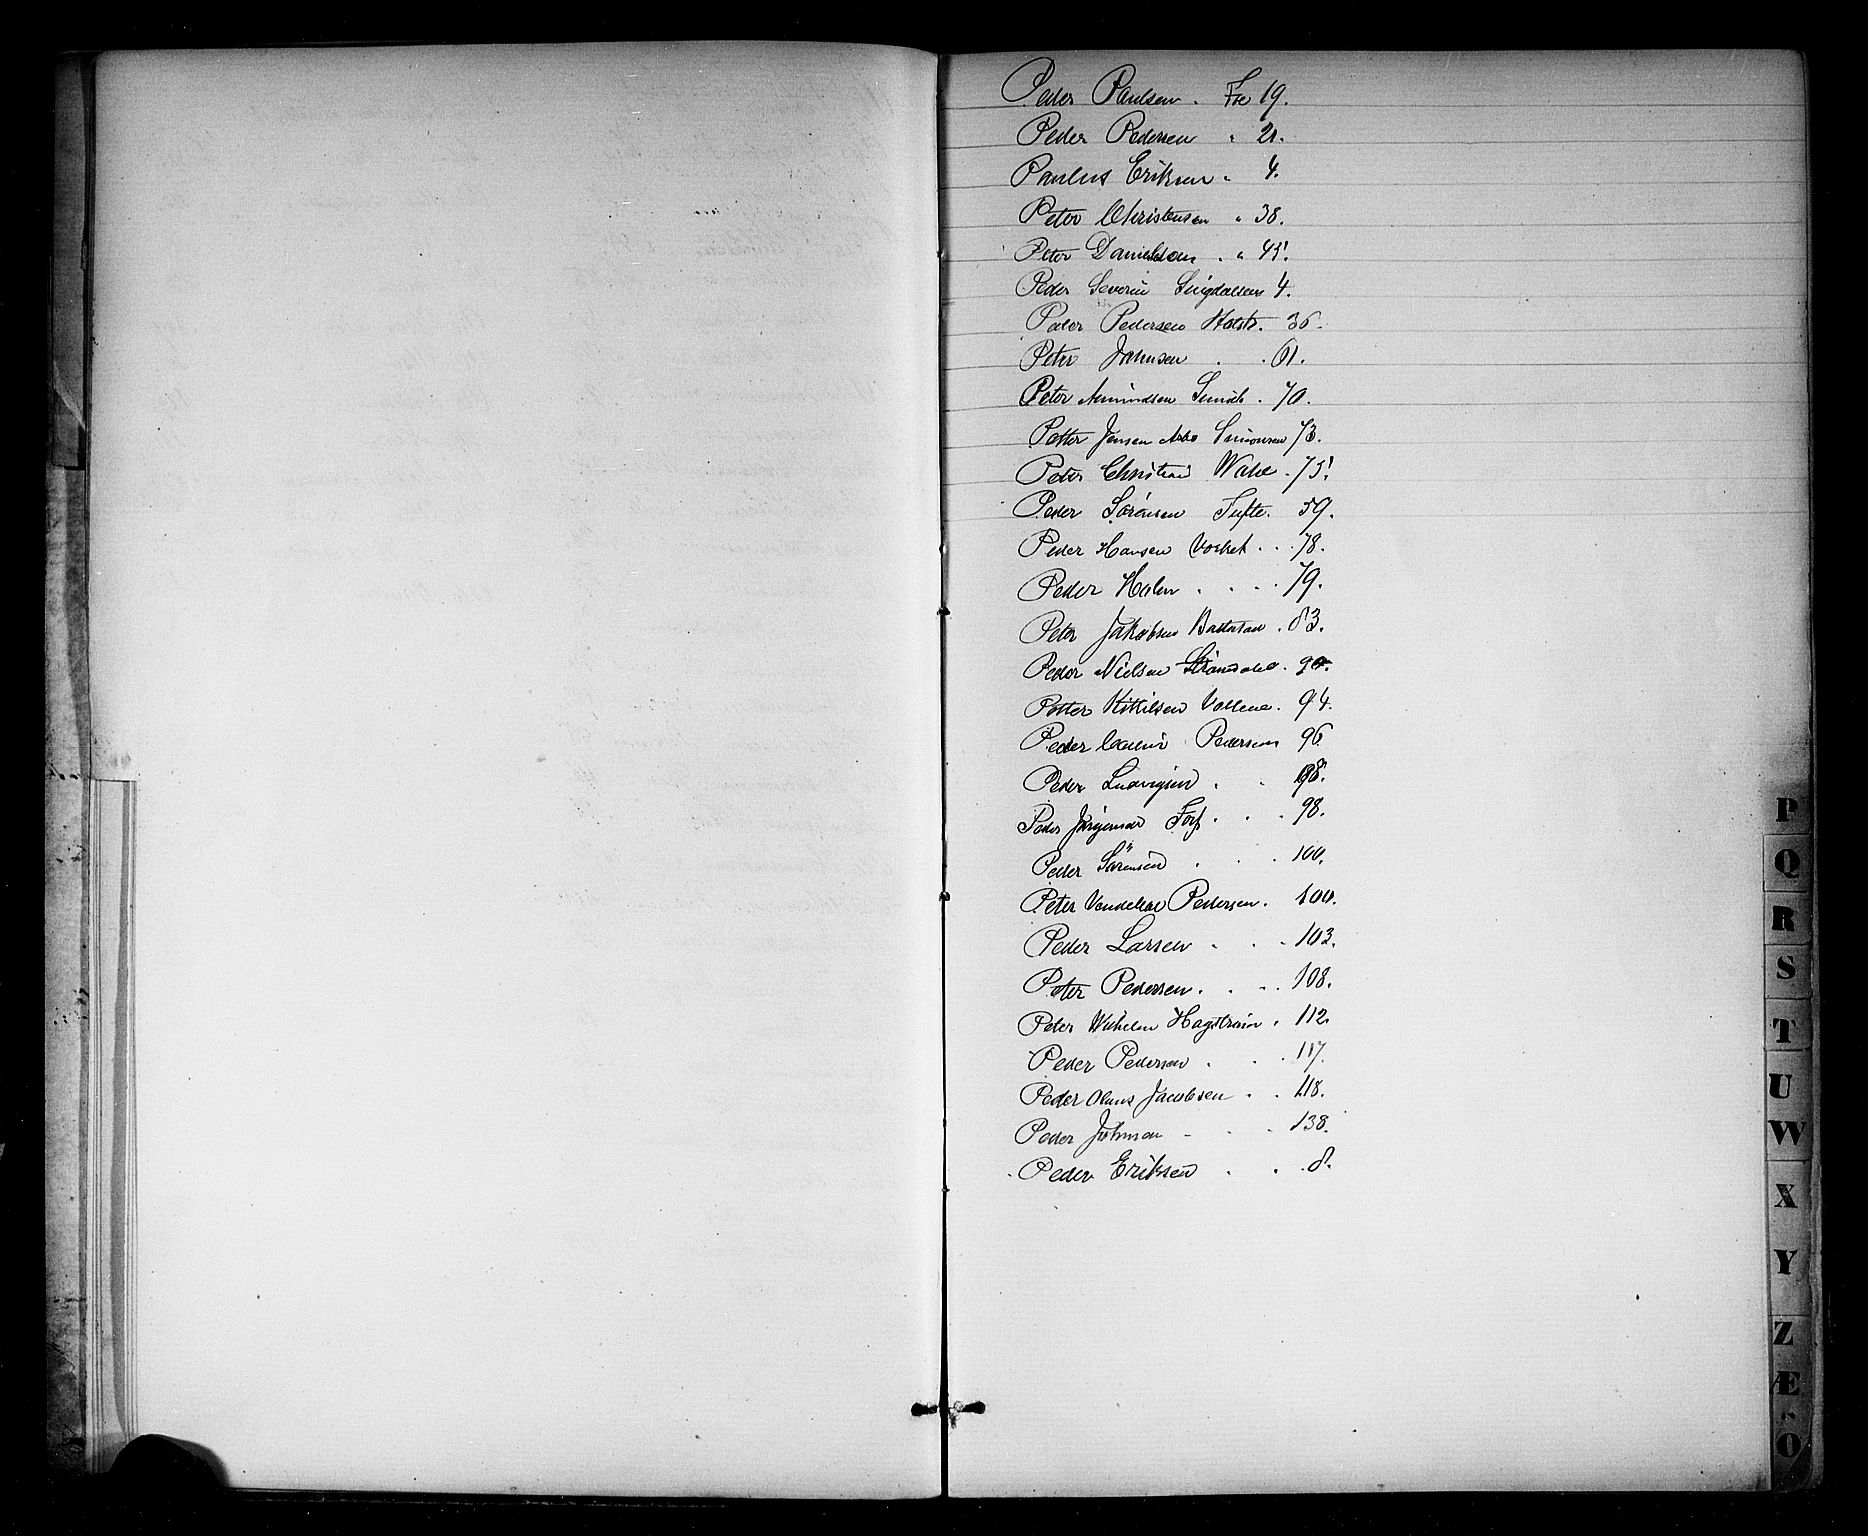 Peder Paulsen . Fol 19.
Peder Pedersen " 21.
Paulus Eriksen " 4.
Peter Christensen " 38.
Peter Danielsen . " 45.
Peder Severin Sigdalsen 4.
Peder Pedersen Holst. 36.
Peter Johnsen . . 61.
Peter Amundsen . 70.
Petter Jensen Arbo Simonsen 73.
Peter Christian . 75.
Peder Sörensen Tufte. 59.
Peder Hansen . . . 78.
Peder Holm . . . . 79.
Peter Jakobsen . 83.
Peder Nielsen Strømdahl . 90.
Petter Kittilsen Vollene . 94.
Peder Pedersen 96
Peder Ludvigsen . . 98.
Peder Jörgensen . . . 98.
Peder Sörensen . . . 100.
Peter Pedersen . 100.
Peder Larsen . . . 103.
Peter Pedersen . . . . 108.
Peter Wilhelm Hagström . 112.
Peder Pedersen . . . 117.
Peder Olaus Jacobsen . . 118.
Peder Johnsen . . . 138.
Peder Eriksen . . . 8.
P
Q
R
S
T
U
W
X
Y
Z
Æ
Ö